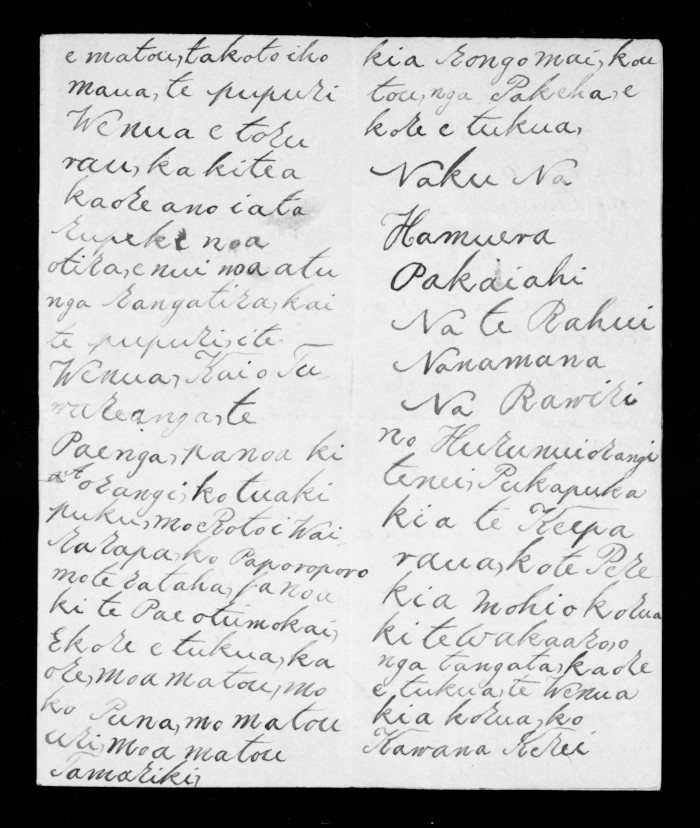 e matou, takoto iho
maua, te pupuri
Wenua e toru
rau, ka kitea
kaore ano i ata
rupeke noa
otira, e nui noa atu
nga rangatira, kai
te pupuri, i te
Wenua, Kai o Tu
wareanga, te
Paenga, panoa ki
Aorangi, ko tuaki
puku, mo Roto i Wai-
rarapa, ko Paporoporo
mo te rataha, panoa
ki te Pae otumokai,
Ekore e tukua, ka
ore, moa matou, mo
ko Puna, mo matou
uri, moa matou
Tamariki,
kia rongo mai, kou
tou, nga Pakeha, e
kore e tukua,
Naku Na
Hamuera
Pakaiahi
Na te Rahui
Nanamana
Na Rawiri
no Hurunuiorangi
tenei, Pukapuka
kia te Keepa
raua, ko te Pere
kia mohio korua
ki te wakaaro, o
nga tangata, kaore
e, tukua, te Wenua
kia korua, ko
Kawana Kerei